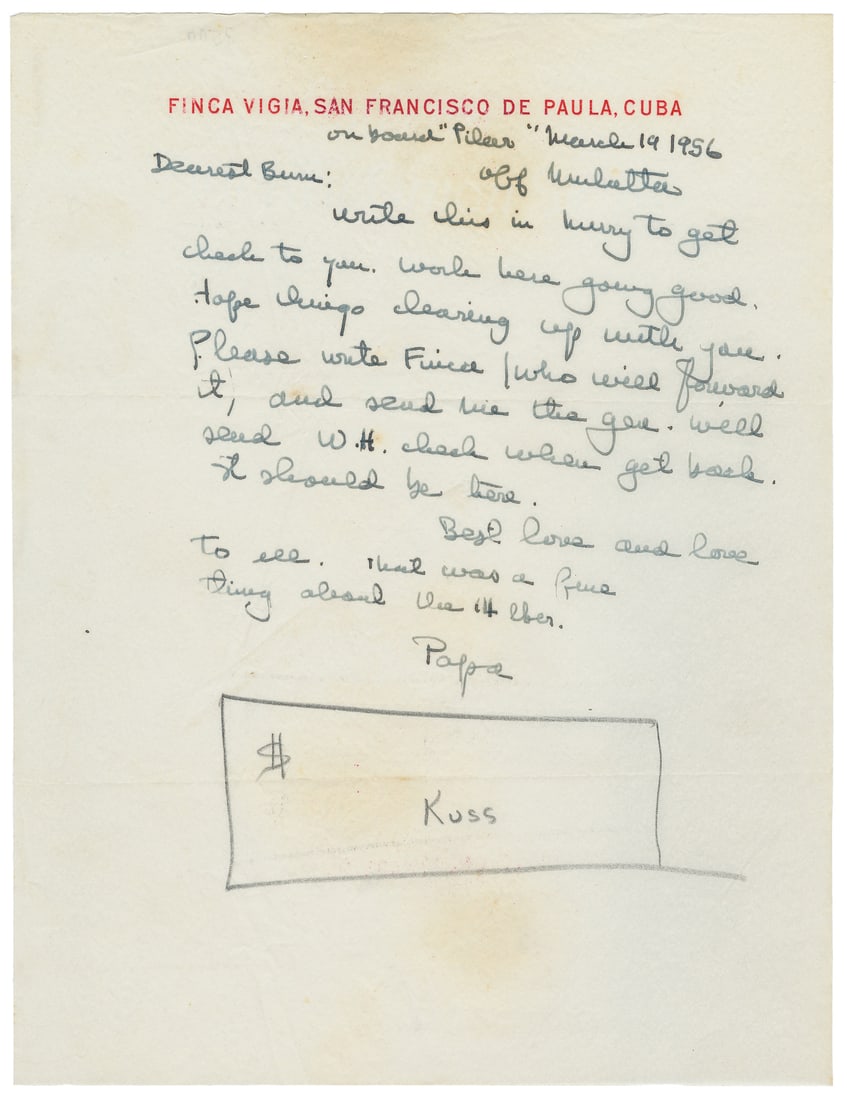 FINCA VIGIA, SAN FRANCISCO DE PAULA, CUBA
on board "Pilar" March 19 1956
Dearest Bum: off Mulatta
write this in hurry to get
check to you. Work here going good.
Hope things clearing up with you.
Please write Finca (who will forward
it) and send me the gen. Will
send W.H. check when get back.
It should be here.
Best love and love
to all. That was a fine
thing about the 14 lber.
Papa
$
Kuss